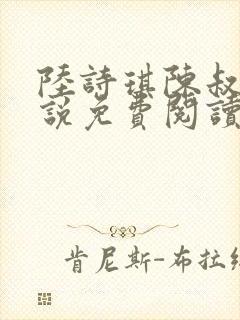 陸詩琪陳叔
說免費閱讀
肯尼斯-布拉